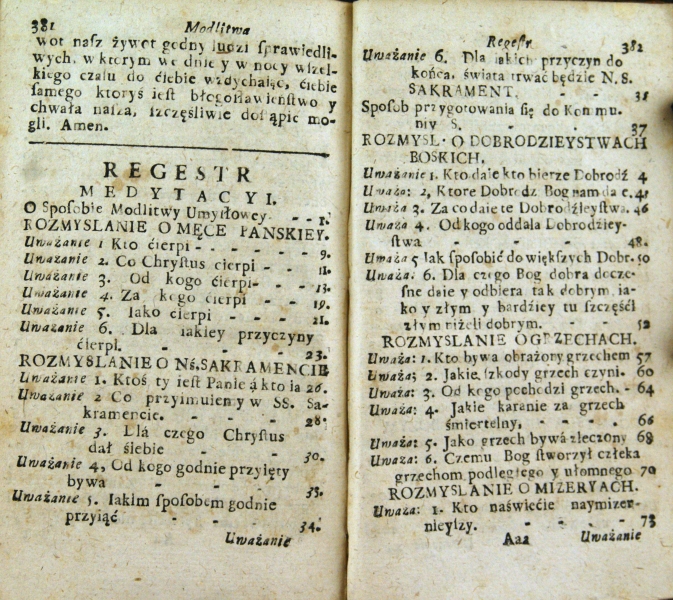 381 Modlitwa
wot nasz żywot godny ludzi sprawiedli-
wych, w ktorym we dnie y w nocy wszel-
kiego czasu do ćiebie wzdychaiąc, ćiebie
samego ktoryś iest błogosławieństwo y
chwała nasza, szczęśliwie dostąpić mo-
gli. Amen.
REGESTR
MEDYTACYI.
O Sposobie Modlitwy Umysłowey. - - 1.
ROZMYSLANIE O MĘCE PANSKIEY.
Uważanie 1 Kto ćierpi - - - - 9.
Uważanie 2. Co Chrystus cierpi - - 11.
Uważanie 3. Od kogo ćierpi - - 13.
Uważanie 4. Za kogo cierpi - - 19.
Uważanie 5. Iako cierpi - - - 21.
Uważanie 6. Dla iakiey przyczyny
ćierpi. - - - - 23.
ROZMYSLANIE O Nś. SAKRAMENCIE
Uważanie 1. Ktoś ty iest Panie á kto ia 26.
Uważanie 2 Co przyimuiemy w SS. Sa-
kramencie. - - - - 28.
Uważanie 3. Dlá czego Chrystus
dał śiebie - - - - 30.
Uważanie 4, Od kogo godnie przyięty
bywa - - - - 33.
Uważanie 5. Iakim sposobem godnie
przyiąć - - - - 34.
Uważanie
Regestr 382
Uważanie 6. Dla iakich przyczyn do
końca, świata trwać będzie N. S.
SAKRAMENT. - - 35
Sposob przygotowania się do Kommu.
niy S. - - - 37
ROZMYSL. O DOBRODZIEYSTWACH
BOSKICH.
Uważanie 1. Kto daie kto bierze Dobrodź 4
Uważa: 2, Ktore Dobrodz Bog nam daie. 41
Uważa 3. Za co daie te Dobrodźieystwa. 46
Uważa 4. Od kogo oddala Dobrodziey-
stwa - - - - 48.
Uważa 5 Iak sposobić do większych Dobr. 50
Uważa: 6. Dla czego Bog dobra docze-
sne daie y odbiera tak dobrym, ia-
ko y złym y bardziey tu szczęśći
złym niżeli dobrym. - - 52
ROZMYSLANIE O GRZECHACH.
Uważa: 1. Kto bywa obrażony grzechem 57
Uważa; 2. Jakie szkody grzech czyni. 60
Uważa: 3. Od kogo pochodzi grzech. - 64
Uważa: 4. Jakie karanie za grzech
śmiertelny, - - - - 66
Uważa: 5. Jako grzech bywa zleczony 68
Uważa: 6. Czemu Bog stworzył człeka
grzechom podległego y ułomnego 70
ROZMYSLANIE O MIZERYACH.
Uważa: 1. Kto naświećie naymizer-
nieyszy. - - - - 73
Aaa Uważanie